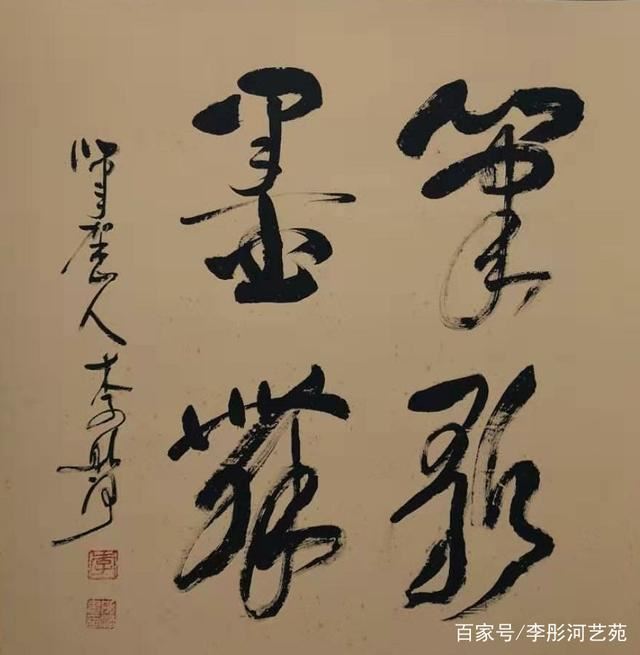 筆歌
墨舞
山人李彤河
李
百家号/李彤河艺苑